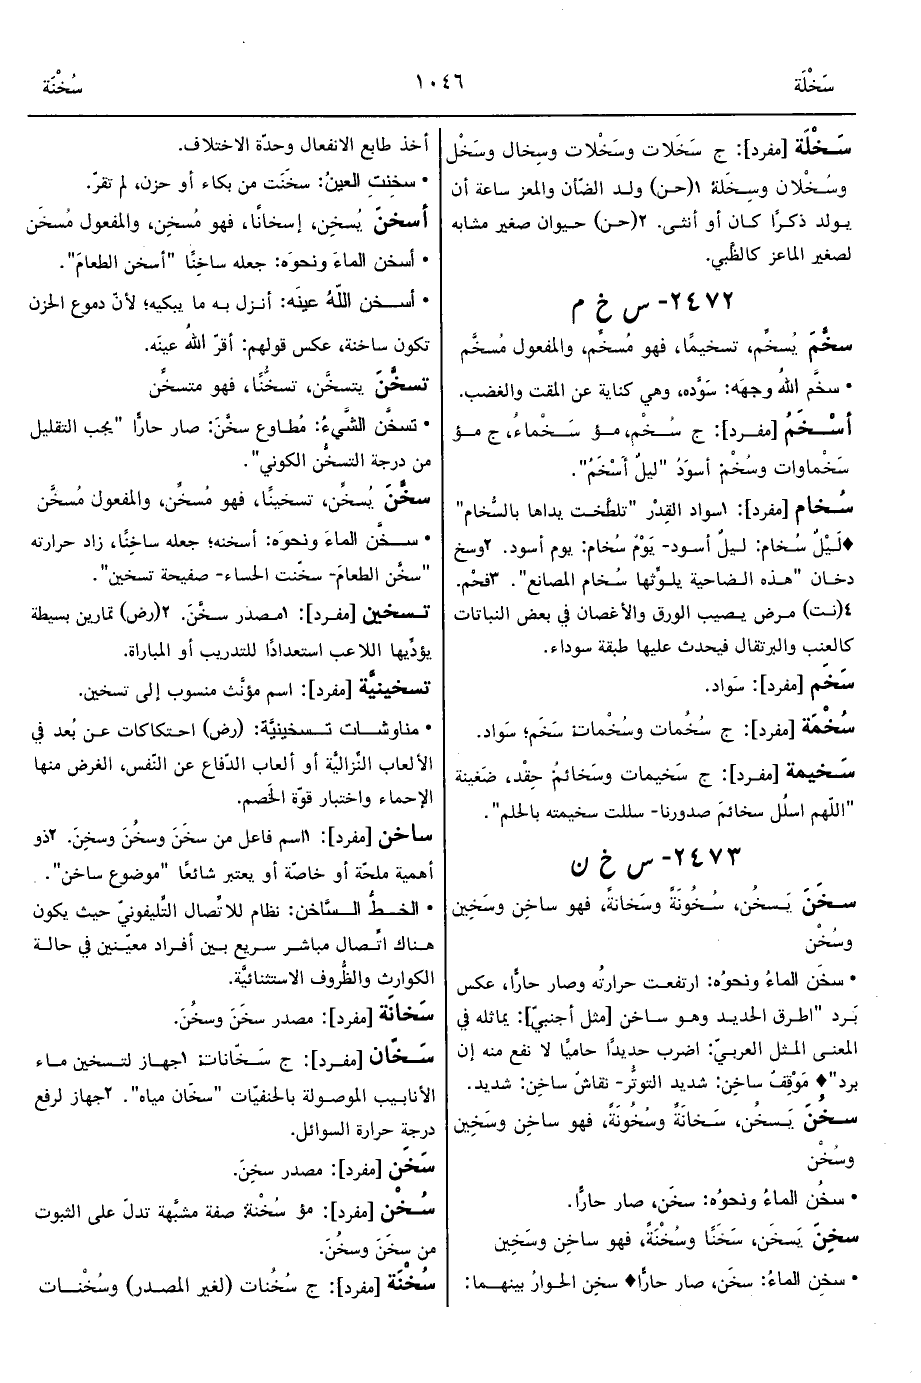 سَخْلَة
١٠٤٦
سُخْنَة
سَـخْلَة [مفرد]: ج سَخَلات وسَخْلات وسِخال وسَخْل
وسُخْلان وسِخَلَة ١(حن) ولد الضّأن والمعز ساعة أن
يولد ذكرًا كان أو أنثى. ٢(حن) حيوان صغير مشابه
لصغير الماعز كالظَّبي.
٢٤٧٢- س خ م
سخَّمَ يُسخِّم، تسخيمًا، فهو مُسخِّم، والمفعول مُسخَّم
• سخَّم اللهُ وجهَه: سَوَّده، وهي كناية عن المقت والغضب.
أَسْـخَمُ [مفـرد]: ج سُـخْم، مـؤ سَـخْماء، ج مـؤ
سَخْماوات وسُخْم: أسوَدُ "ليلٌ أَسْخَمُ".
سُخام [مفرد]: ١سواد القِدْر "تلطَّخت يداها بالسُّخام"
♦لَيْلٌ سُخام: ليلٌ أسود- يَوْمٌ سُخام: يوم أسود. ٢وسخ
دخان "هـذه الضاحية يلوِّثها سُخام المصانع". ٣فحْم.
٤(نت) مرض يـصيب الورق والأغصان في بعض النباتات
كالعنب والبرتقال فيحدث عليها طبقة سوداء.
سَخَم [مفرد]: سَواد.
سُخْمَة [مفرد]: ج سُخُمات وسُخْمات: سَخَم؛ سَواد.
سَـخيمة [مفـرد]: ج سَخيمات وسَخائمُ: حِقْد، ضَغينة
"اللّهم اسلُل سخائمَ صدورنا- سللت سخيمته بالحلم".
٢٤٧٣- س خ ن
سـخَنَ يَـسخُن، سُـخُونَةً وسَخانةً، فهو ساخِن وسَخين
وسُخْن
• سخَن الماءُ ونحوُه: ارتفعت حرارتُه وصار حارًّا، عكس
بَرد "اطرق الحديـد وهـو سـاخن [مثل أجنبيّ]: يماثله في
المعنى المـثل العربيّ: اضرب حديدًا حاميًا لا نفع منه إن
برد"♦ مَوْقِفٌ ساخِن: شديد التوتُّر- نقاشٌ ساخِن: شديد.
سـخُنَ يَـسخُن، سَـخانَةً وسُخُونَةً، فهو ساخِن وسَخِين
وسُخْن
• سخُن الماءُ ونحوُه: سخَن، صار حارًّا.
سخِنَ يَسخَن، سَخَنًا وسُخْنَةً، فهو ساخِن وسَخِين
• سخِن الماءُ: سخَن، صار حارًّا♦ سخِن الحوارُ بينهـما:
أخذ طابع الانفعال وحدّة الاختلاف.
• سخِنت العينُ: سخَنت من بكاء أو حزن، لم تقرّ.
أسخنَ يُسخِن، إسخانًا، فهو مُسخِن، والمفعول مُسخَن
• أسخن الماءَ ونحوَه: جعله ساخِنًا "أسخن الطعامَ".
• أسـخن اللّهُ عينَه: أنـزل بـه ما يبكيه؛ لأنّ دموع الحزن
تكون ساخنة، عكس قولهم: أقرّ اللهُ عينَه.
تسخَّنَ يتسخَّن، تسخُّنًا، فهو متسخِّن
• تسخَّن الشَّيءُ: مُطاوع سخَّنَ: صار حارًّا "يجب التقليل
من درجة التسخُّن الكوني".
سخَّنَ يُسخِّن، تسخينًا، فهو مُسخِّن، والمفعول مُسخَّن
• سـخَّن الماءَ ونحوَه: أسخنه؛ جعله ساخِنًا، زاد حرارته
"سخَّن الطعامَ- سخّنت الحساء- صفيحة تسخين".
تـسخين [مفـرد]: ١مـصدر سـخَّنَ. ٢(رض) تمارين بسيطة
يؤدِّيها اللاعب استعدادًا للتدريب أو المباراة.
تسخينيَّة [مفرد]: اسم مؤنَّث منسوب إلى تسخين.
• مـناوشـات تـسخينيَّة: (رض) احـتكاكات عـن بُعد في
الألعاب النِّزاليَّة أو ألعاب الدّفاع عن النّفس، الغرض منها
الإحماء واختبار قوّة الخَصم.
ساخن [مفرد]: ١اسم فاعل من سخَنَ وسخُنَ وسخِنَ. ٢ذو
أهمية ملحّة أو خاصّة أو يعتبر شائعًا "موضوع ساخن".
• الخـطُّ الـسَّاخن: نظام للاتِّصال التِّليفونيّ حيث يكون
هـناك اتِّـصال مباشر سريع بـين أفـراد معيَّـنين في حالـة
الكوارث والظُّروف الاستثنائيَّة.
سَخانَة [مفرد]: مصدر سخَنَ وسخُنَ.
سَـخَّان [مفـرد]: ج سَـخّانات: ١جهاز لتـسخين مـاء
الأنابيب الموصـولة بالحنفيّات "سخّان مياه". ٢جهاز لرفع
درجة حرارة السوائل.
سَخَن [مفرد]: مصدر سخِنَ.
سُـخْن [مفرد]: مؤ سُخْنة: صفة مشبَّهة تدلّ على الثبوت
من سخَنَ وسخُنَ.
سُخْنَة [مفرد]: ج سُخُنات (لغير المصدر) وسُخْنـات